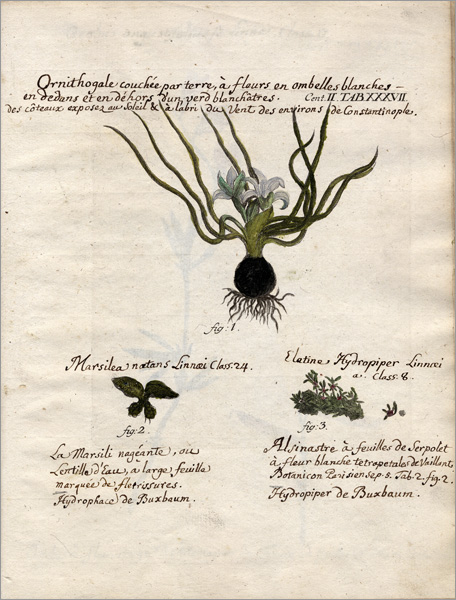 Ornithogale couchée par terre, à fleurs en ombelles blanches –
en dedans et en déhors d'un verd blanchâtres. Cent. II. TAB. XXXVII.
des côteaux exposez au Soleil & à l'abri du Vent des environs de Constantinople.
fig: 1.
Marsilea natans Linnæi Class. 24.
fig: 2.
La Marsili nageánte, ou
Lentille d'Eau, a large feuille
marquée de fletrissures.
Hydrophace de Buxbaum.
Elatine, Hydropiper Linnæi
a. Class. 8.
fig: 3.
Alsinastre à feuilles de Serpolet
à fleur blanche tetropetales de Vaillant,
Botanicon Parisiense p. 5. Tab. 2. fig. 2.
Hydropiper de Buxbaum.